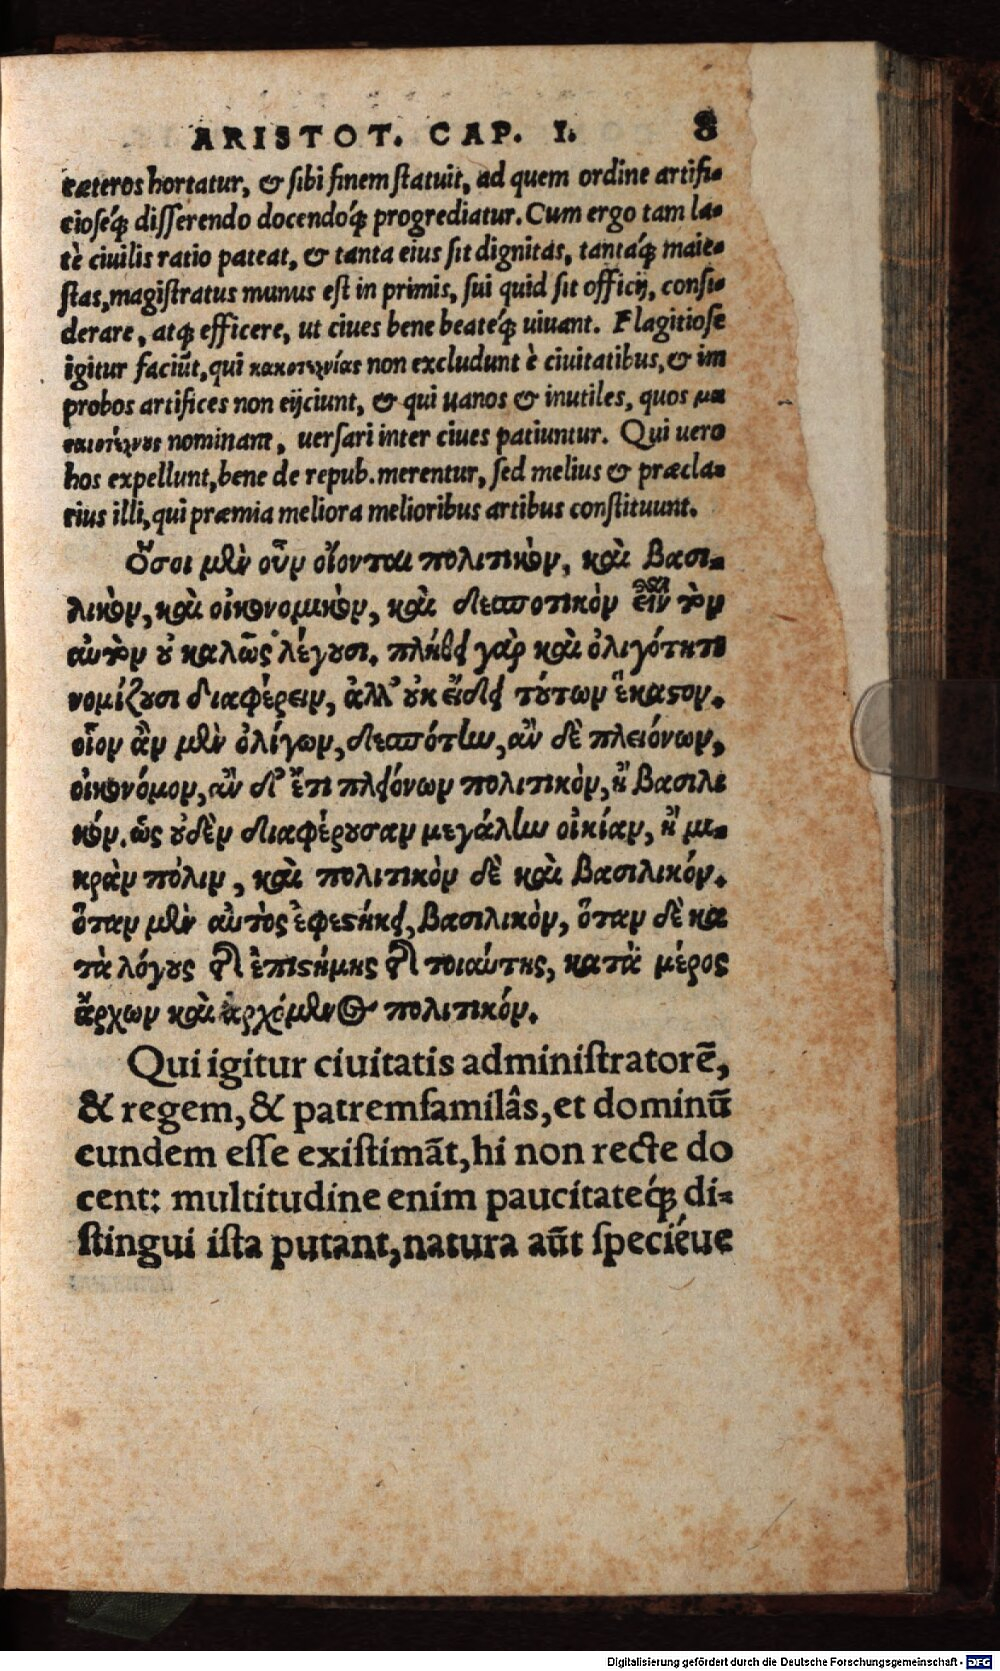 ARISTOT. CAP. I. 8
cæteros hortatur, & sibi finem statuit, ad quem ordine artifi-
cioseq́; disserendo docendoq́; progrediatur. Cum ergo tam la-
tè ciuilis ratio pateat, & tanta eius sit dignitas, tantaq́; maie-
stas, magistratus munus est in primis, sui quid sit officij, consi-
derare, atq; efficere, ut ciues bene beateq́; uiuant. Flagitiose
igitur faciũt, qui κακοτεχνίας non excludunt è ciuitatibus, & im
probos artifices non eijciunt, & qui uanos & inutiles, quos μα
ταιοτέχνους nominant, uersari inter ciues patiuntur. Qui uero
hos expellunt, bene de repub. merentur, sed melius & præcla-
rius illi, qui præmia meliora melioribus artibus constituunt.
Ὅσοι μὲν οὖν οἴονται πολιτικὸν, καὶ βασι-
λικὸν, καὶ οἰκονομικὸν, καὶ δεσποτικὸν εἶναι τὸν
αὐτὸν οὐ καλῶς λέγουσι. πλήθει γὰρ καὶ ὀλιγότητι
νομίζουσι διαφέρειν, ἀλλ' οὐκ εἴδει τούτων ἕκαστον.
οἷον ἂν μὲν ὀλίγων, δεσπότην, ἂν δὲ πλειόνων,
οἰκονόμον, ἂν δ' ἔτι πλειόνων πολιτικὸν, ἢ βασιλι
κόν. ὡς οὐδὲν διαφέρουσαν μεγάλην οἰκίαν, ἢ μι-
κρὰν πόλιν, καὶ πολιτικὸν δὲ καὶ βασιλικόν.
ὅταν μὲν αὐτὸς ἐφεστήκει, βασιλικὸν, ὅταν δὲ κα
τὰ λόγους τῆς ἐπιστήμης τῆς τοιαύτης, κατὰ μέρος
ἄρχων καὶ ἀρχόμενος πολιτικόν.
Qui igitur ciuitatis administratorẽ,
& regem, & patremfamilâs, et dominũ
eundem esse existimãt, hi non recte do
cent: multitudine enim paucitateq́; di-
stingui ista putant, natura aũt speciéue
Digitalisierung gefördert durch die Deutsche Forschungsgemeinschaft - DFG